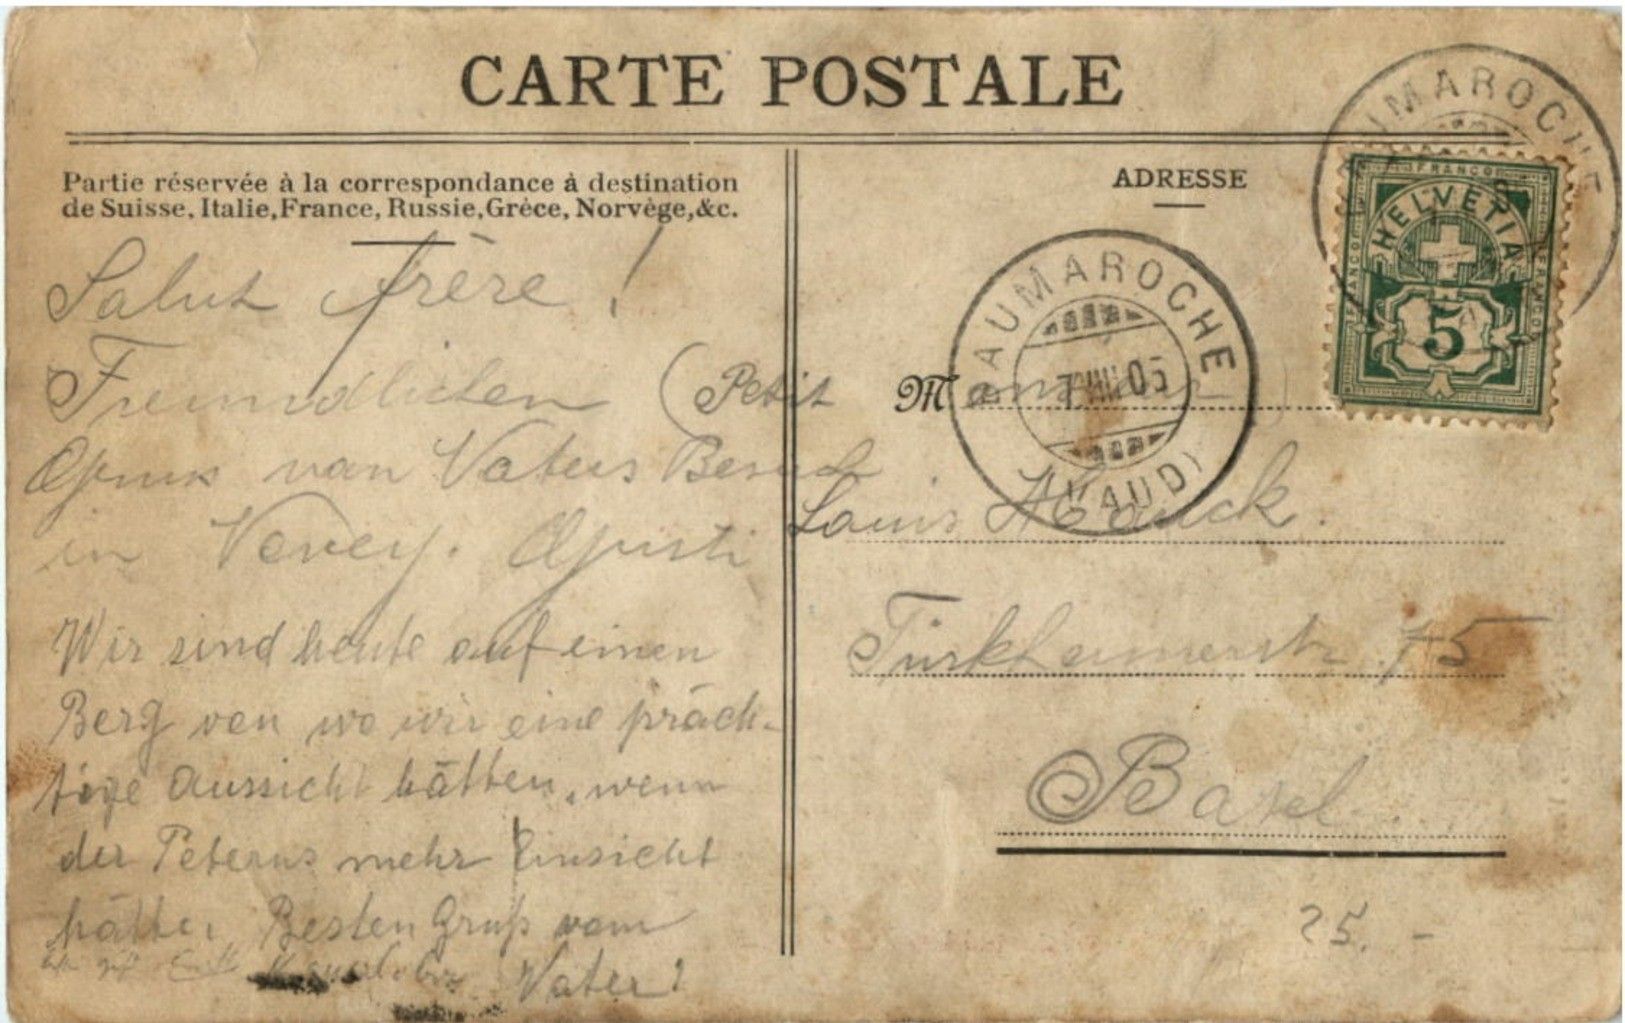 CARTE POSTALE
Partie réservée à la correspondance à destination
de Suisse, Italie, France, Russie, Grèce, Norvège, &c.
Salut frère !
(Petit
van Vaters Besuch
in Vevey.
Wir sind heute auf einen
Berg von wo wir eine präch-
tige Aussicht hätten, wenn
der Peterus mehr Einsicht
hätte. Besten Gruss vom
Vater!
ADRESSE
Monsieur
Louis Hauck.
Türkheimerstr 75
Basel
25.-
BAUMAROCHE
7 VIII 05
(VAUD)
BAUMAROCHE
FRANCO
HELVETIA
FRANCO
FRANCO
5